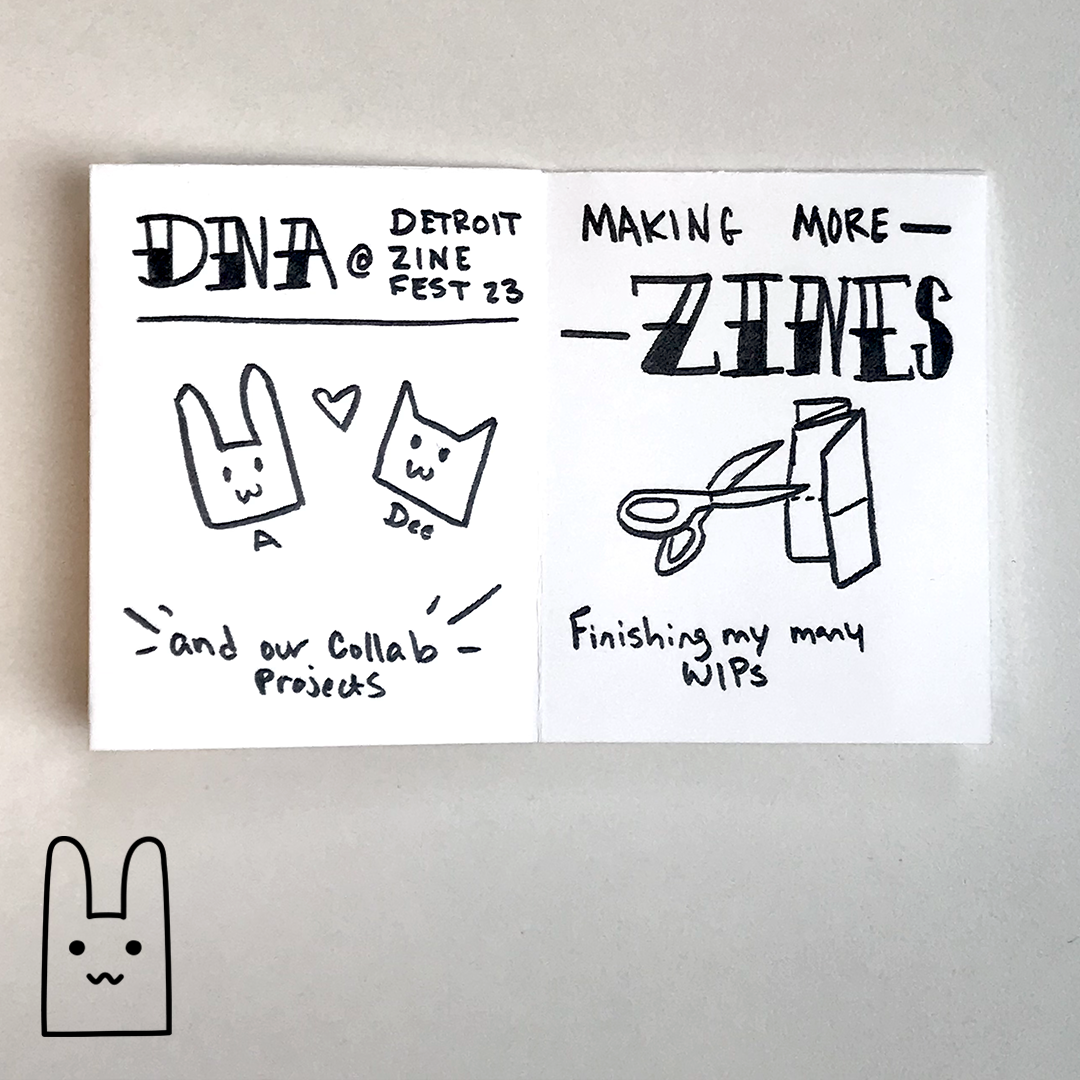 DNA @ DETROIT
ZINE
FEST 23
A
Dee
and our Collab
Projects
MAKING MORE—
—ZINES
Finishing my many
WIPs